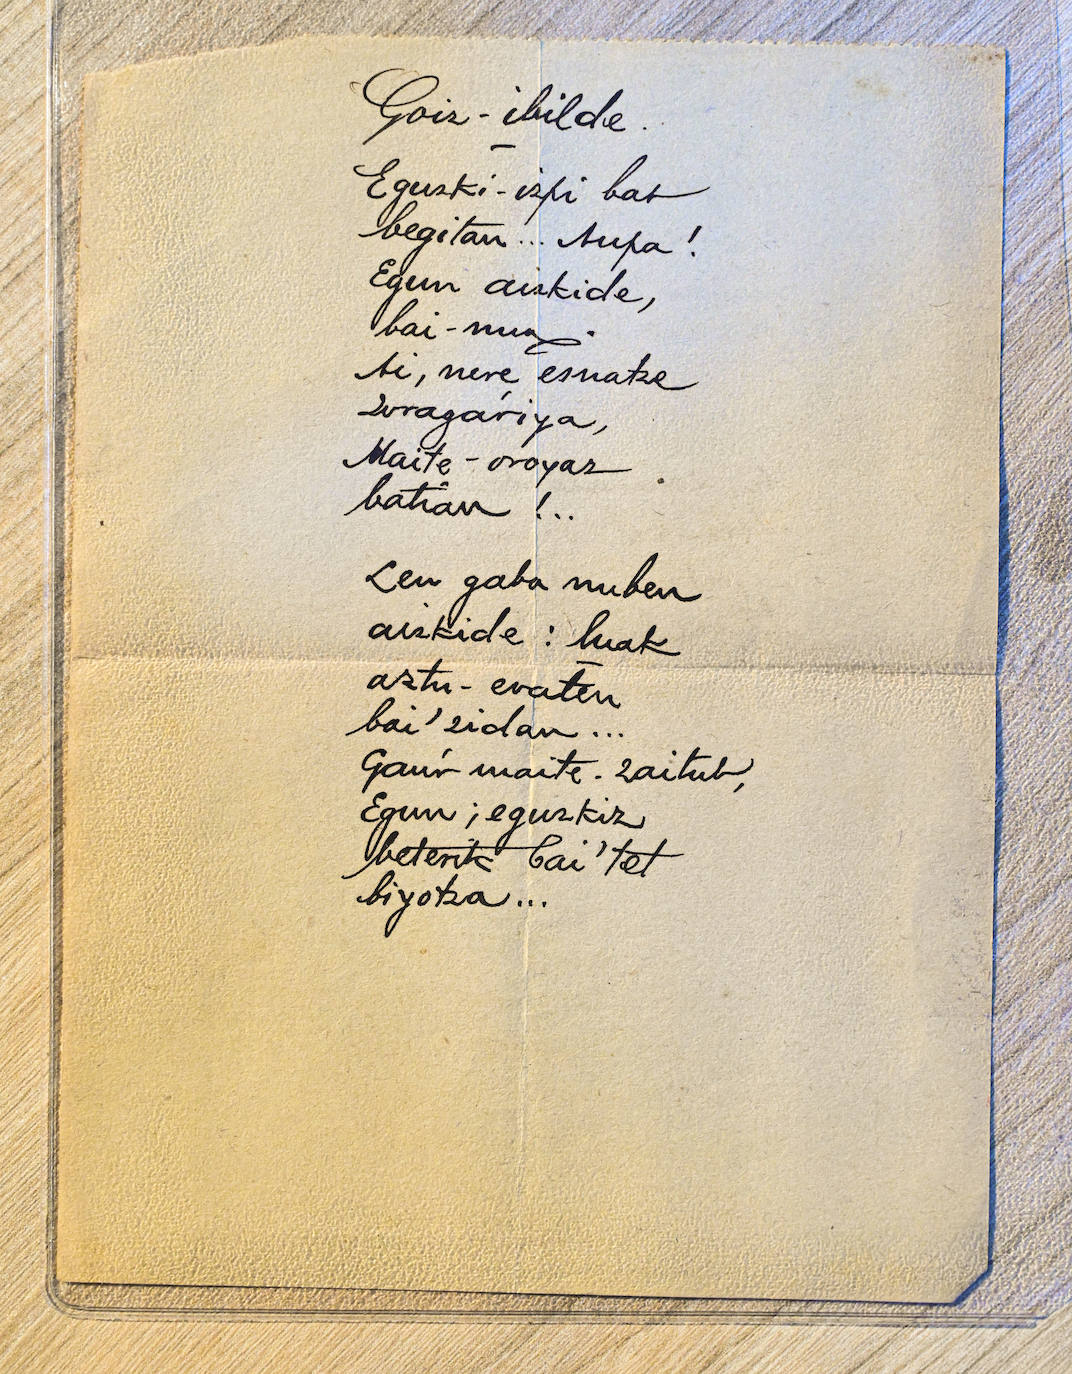 Goiz-ibilde.
Eguzki-izpi bat
begitan... Aupa!
Egun aizkide,
bai-nuz.
Ai, nere esnatze
zoragáriya,
Maite-oroyaz
batian!..
Len gaba nuben
aizkide: luak
aztu-eraten
bai'zidan...
Gauŕ maite-zaitut,
Egun; eguzkiz
beterik bai'tet
biyotza...